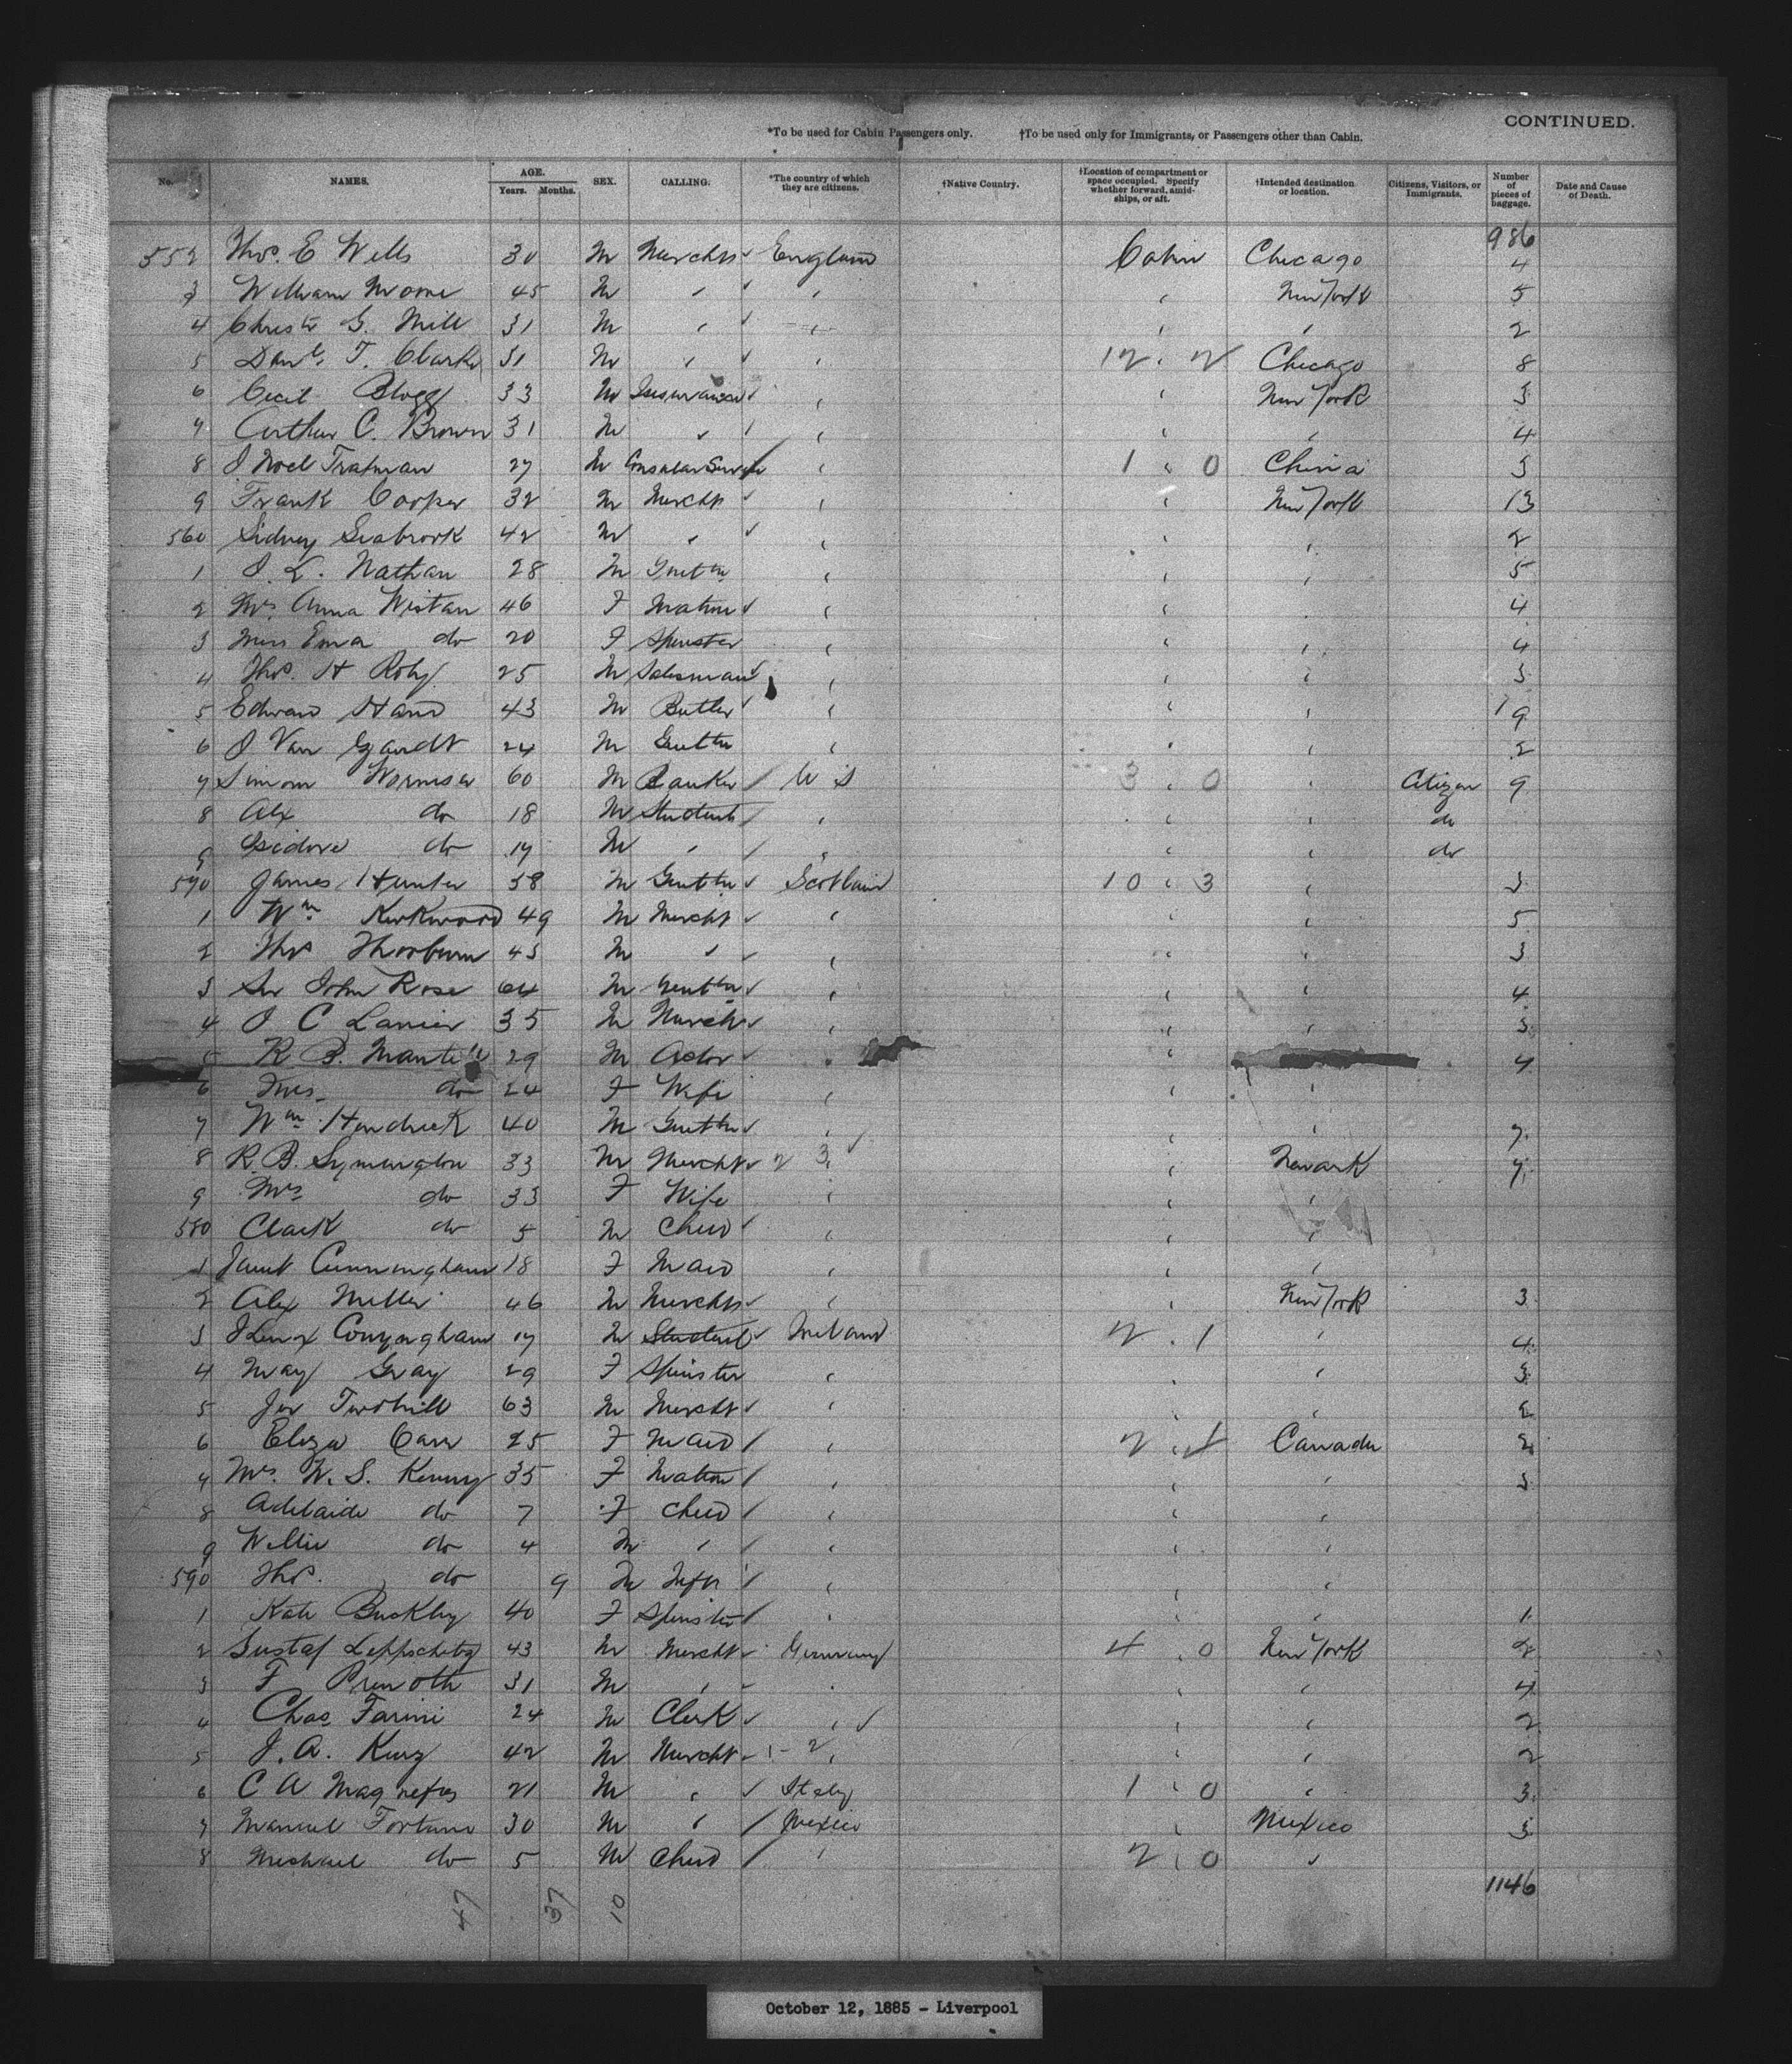 CONTINUED.
*To be used for Cabin Passengers only. †To be used only for Immigrants, or Passengers other than Cabin.
No. NAMES. AGE. Years. Months. SEX. CALLING. *The country of which they are citizens. †Native Country. †Location of compartment or space occupied. Specify whether forward, amidships, or aft. †Intended destination or location. Citizens, Visitors, or Immigrants. Number of pieces of baggage. Date and Cause of Death.
986
552 Thos. E Wells 30 M Mercht England Cabin Chicago 4
3 William Moore 45 M " " " New York 5
4 Christr G. Mill 31 M " " " " 2
5 Danl. T. Clarke 31 M " " 12 " 2 Chicago 8
6 Cecil Blogg 33 M Insurance " " New York 3
7 Arthur C. Brown 31 M " " " " 4
8 J Noel Tratman 27 M Consular Service " 1 " 0 China 3
9 Frank Cooper 32 M Mercht " " New York 13
560 Sidney Seabrook 42 M " " " " 2
1 J. L. Nathan 28 M Gnttn " " " 5
2 Mrs Anna Wistan 46 F Matron " " " 4
3 Miss Ema do 20 F Spinster " " " 4
4 Thos. H Roby 25 M Salesman " " " 3
5 Edward Hand 43 M Butler " " " 9
6 J Van Zandt 24 M Gnttn " " " 2
7 Simon Wormser 60 M Banker U S 3 " 0 " Citizen 9
8 Alex do 18 M Student " " " do
9 Isidore do 17 M " " " " do
570 James Hunter 38 M Gnttn Scotland 10 " 3 " 3
1 Wm Kirkwood 49 M Mercht " " " 5
2 Thos Thorburn 43 M " " " " 3
3 Sir John Rose 64 M Gnttn " " " 4
4 J C Lanier 35 M Mercht " " " 3
5 R B. Mantell 29 M Actor " " 4
6 Mrs. do 24 F Wife " " "
7 Wm Hendrick 40 M Gnttn " " " 7
8 R. B. Symington 33 M Mercht 2 3 " Newark 7
9 Mrs do 33 F Wife " " "
580 Clark do 5 M Child " " "
1 Janet Cunningham 18 F Maid " " "
2 Alex Miller 46 M Mercht " " New York 3
3 J Lenox Conyngham 17 M Student Ireland 2 " 1 " 4
4 May Gray 29 F Spinster " " " 3
5 Jos Twohill 63 M Mercht " " " 2
6 Eliza Carr 25 F Maid " 2 " 1 Canada 2
7 Mrs. W. S. Kenny 35 F Matron " " " 3
8 Adelaide do 7 F Child " " "
9 Willie do 4 M " " " "
590 Thos. do 9 M Inft " " "
1 Kate Buckley 40 F Spinster " " " 1
2 Gustaf Leppschetz 43 M Mercht Germany 4 " 0 New York 2
3 F 31 M " " " " 4
4 Chas Farini 24 M Clerk " " " 2
5 J. A. Kurz 42 M Mercht 1 - 2 " " 2
6 C A 21 M " Italy 1 " 0 " 3
7 Manuel Fortuno 30 M " Mexico " Mexico 3
8 Michael do 5 M Child " 2 " 0 "
1146
47 37 10
October 12, 1885 - Liverpool